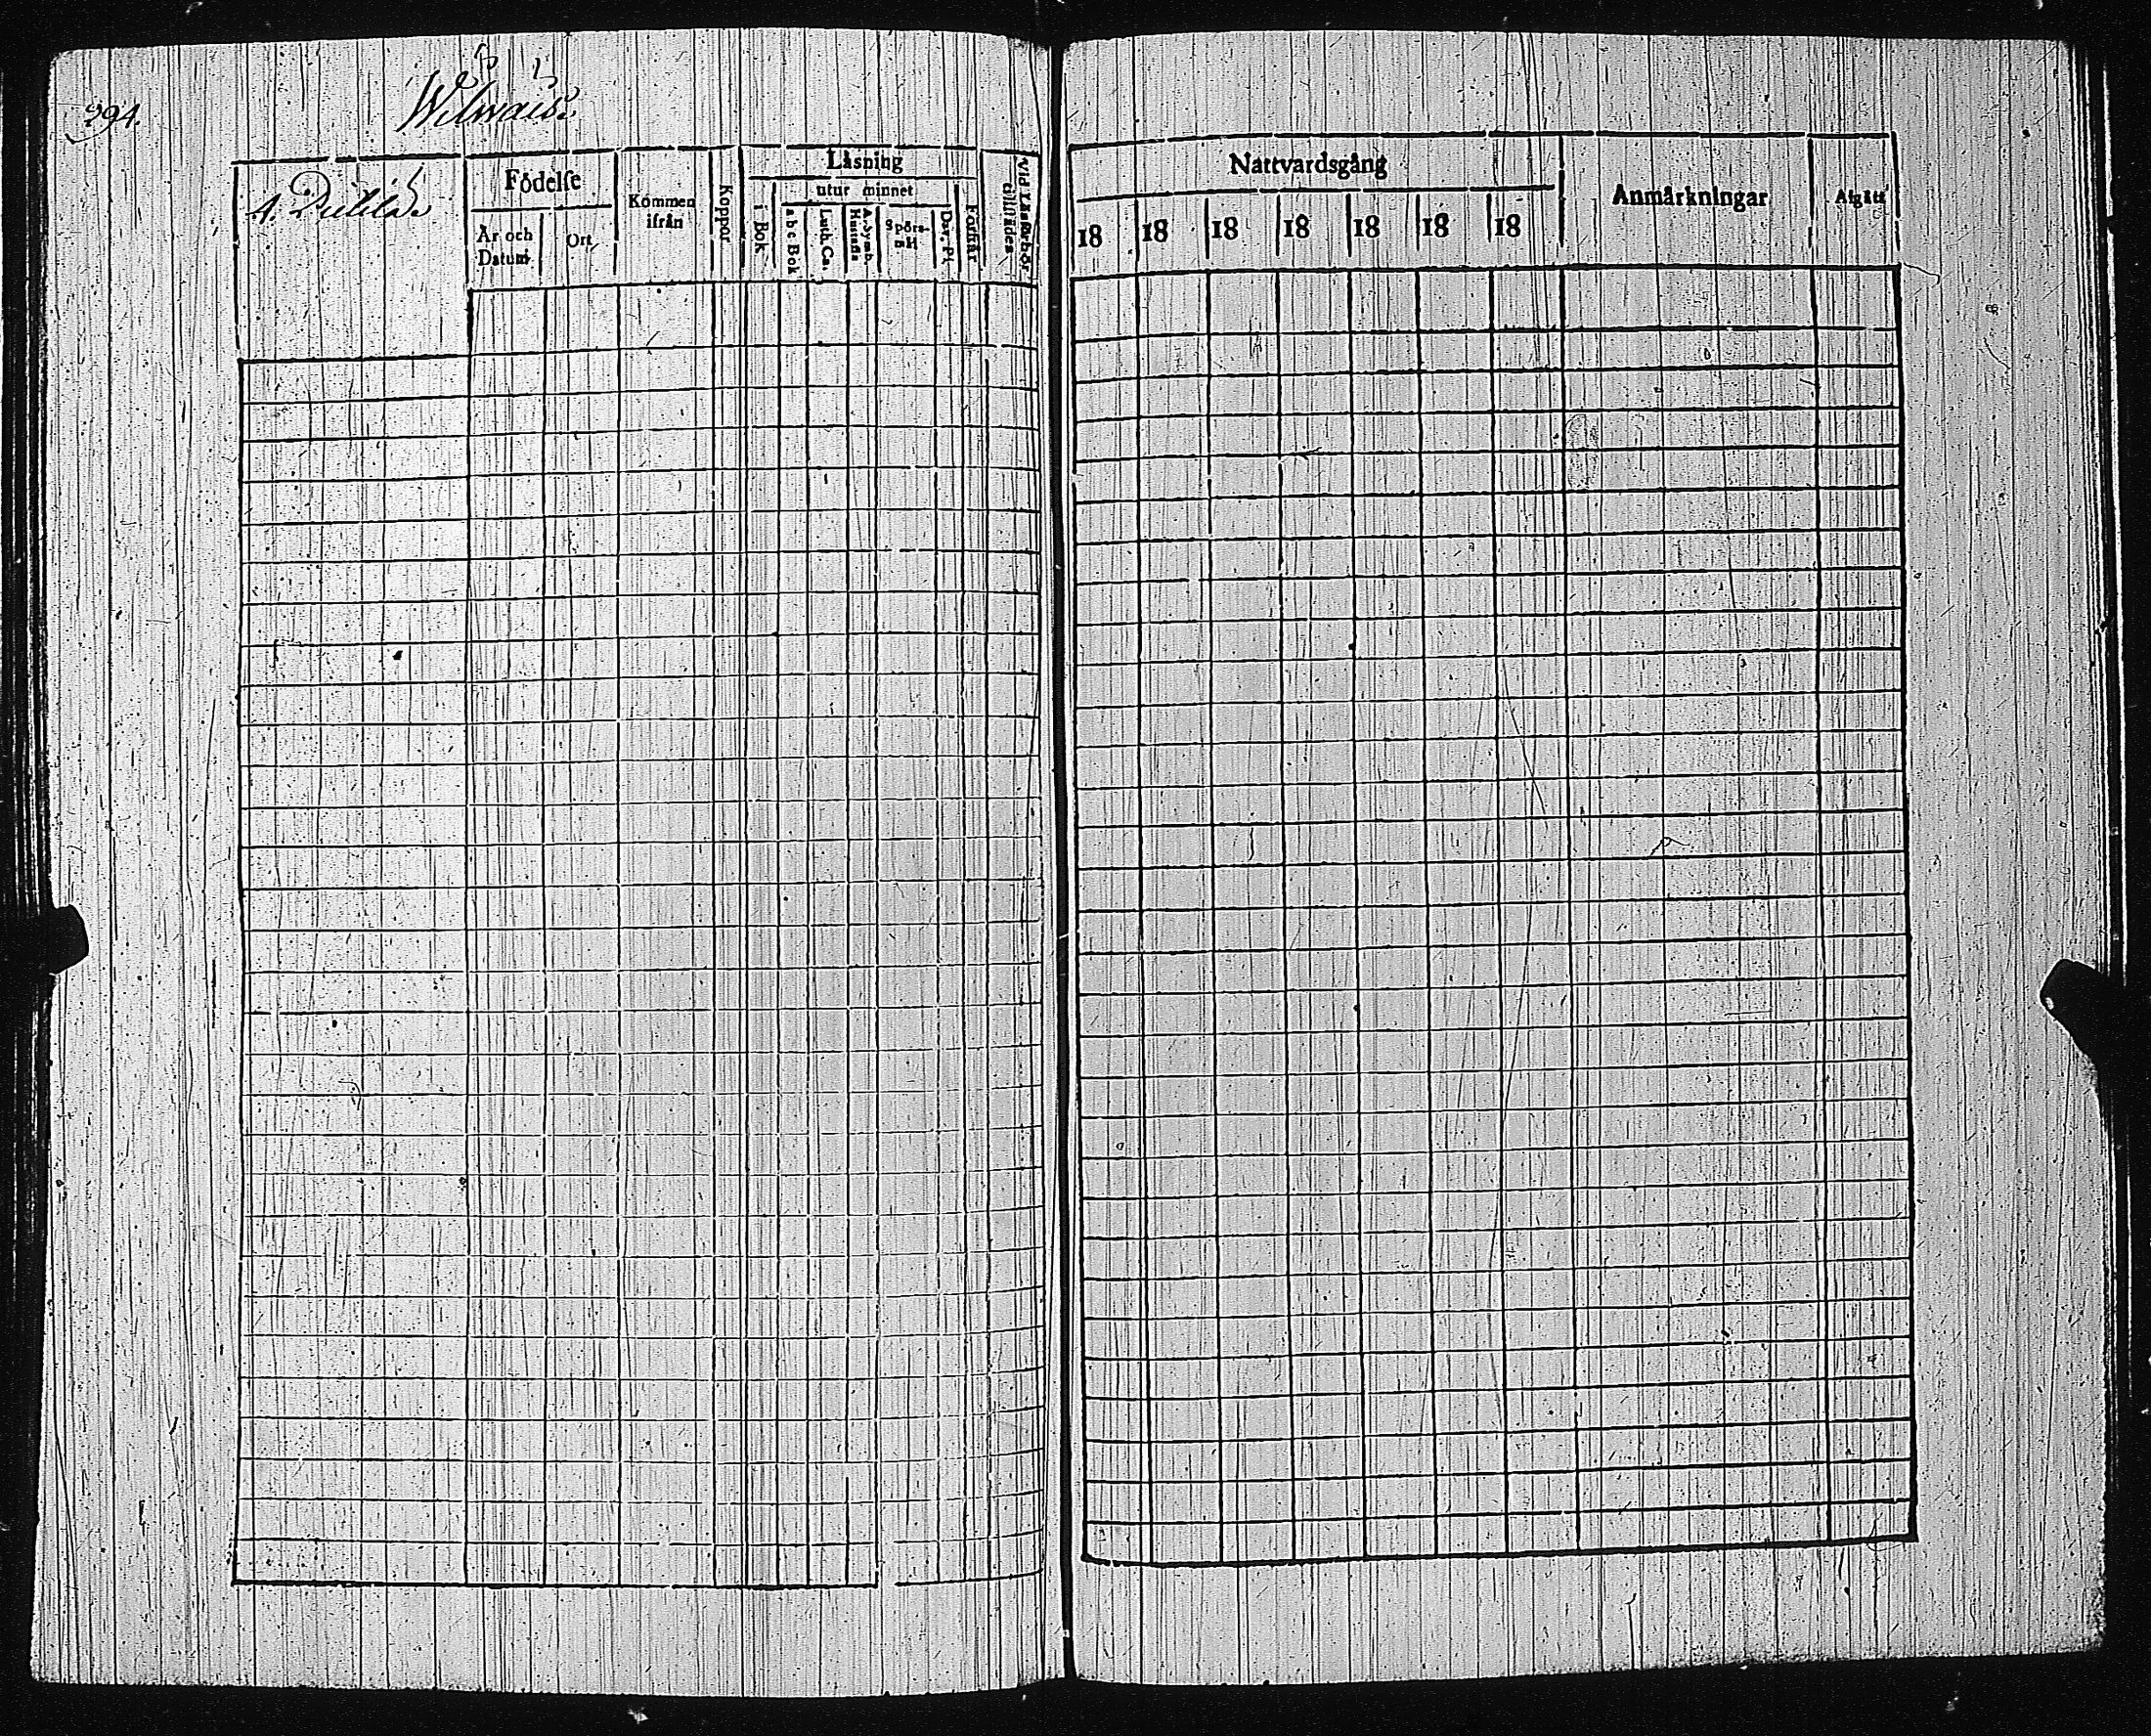 394.
Födelse
Kommen ifrån
Koppor
Läsning
utur minnet
År och Datum
Ort
i Bok
abc Bok
Luth. Ca.
A. Symb. Hustafla
Spörsmål
Dav. Ps.
Förstår
Vid Läsförhör tillstädes
Nattvardsgång
18 18 18 18 18 18 18
Anmärkningar
Afgått